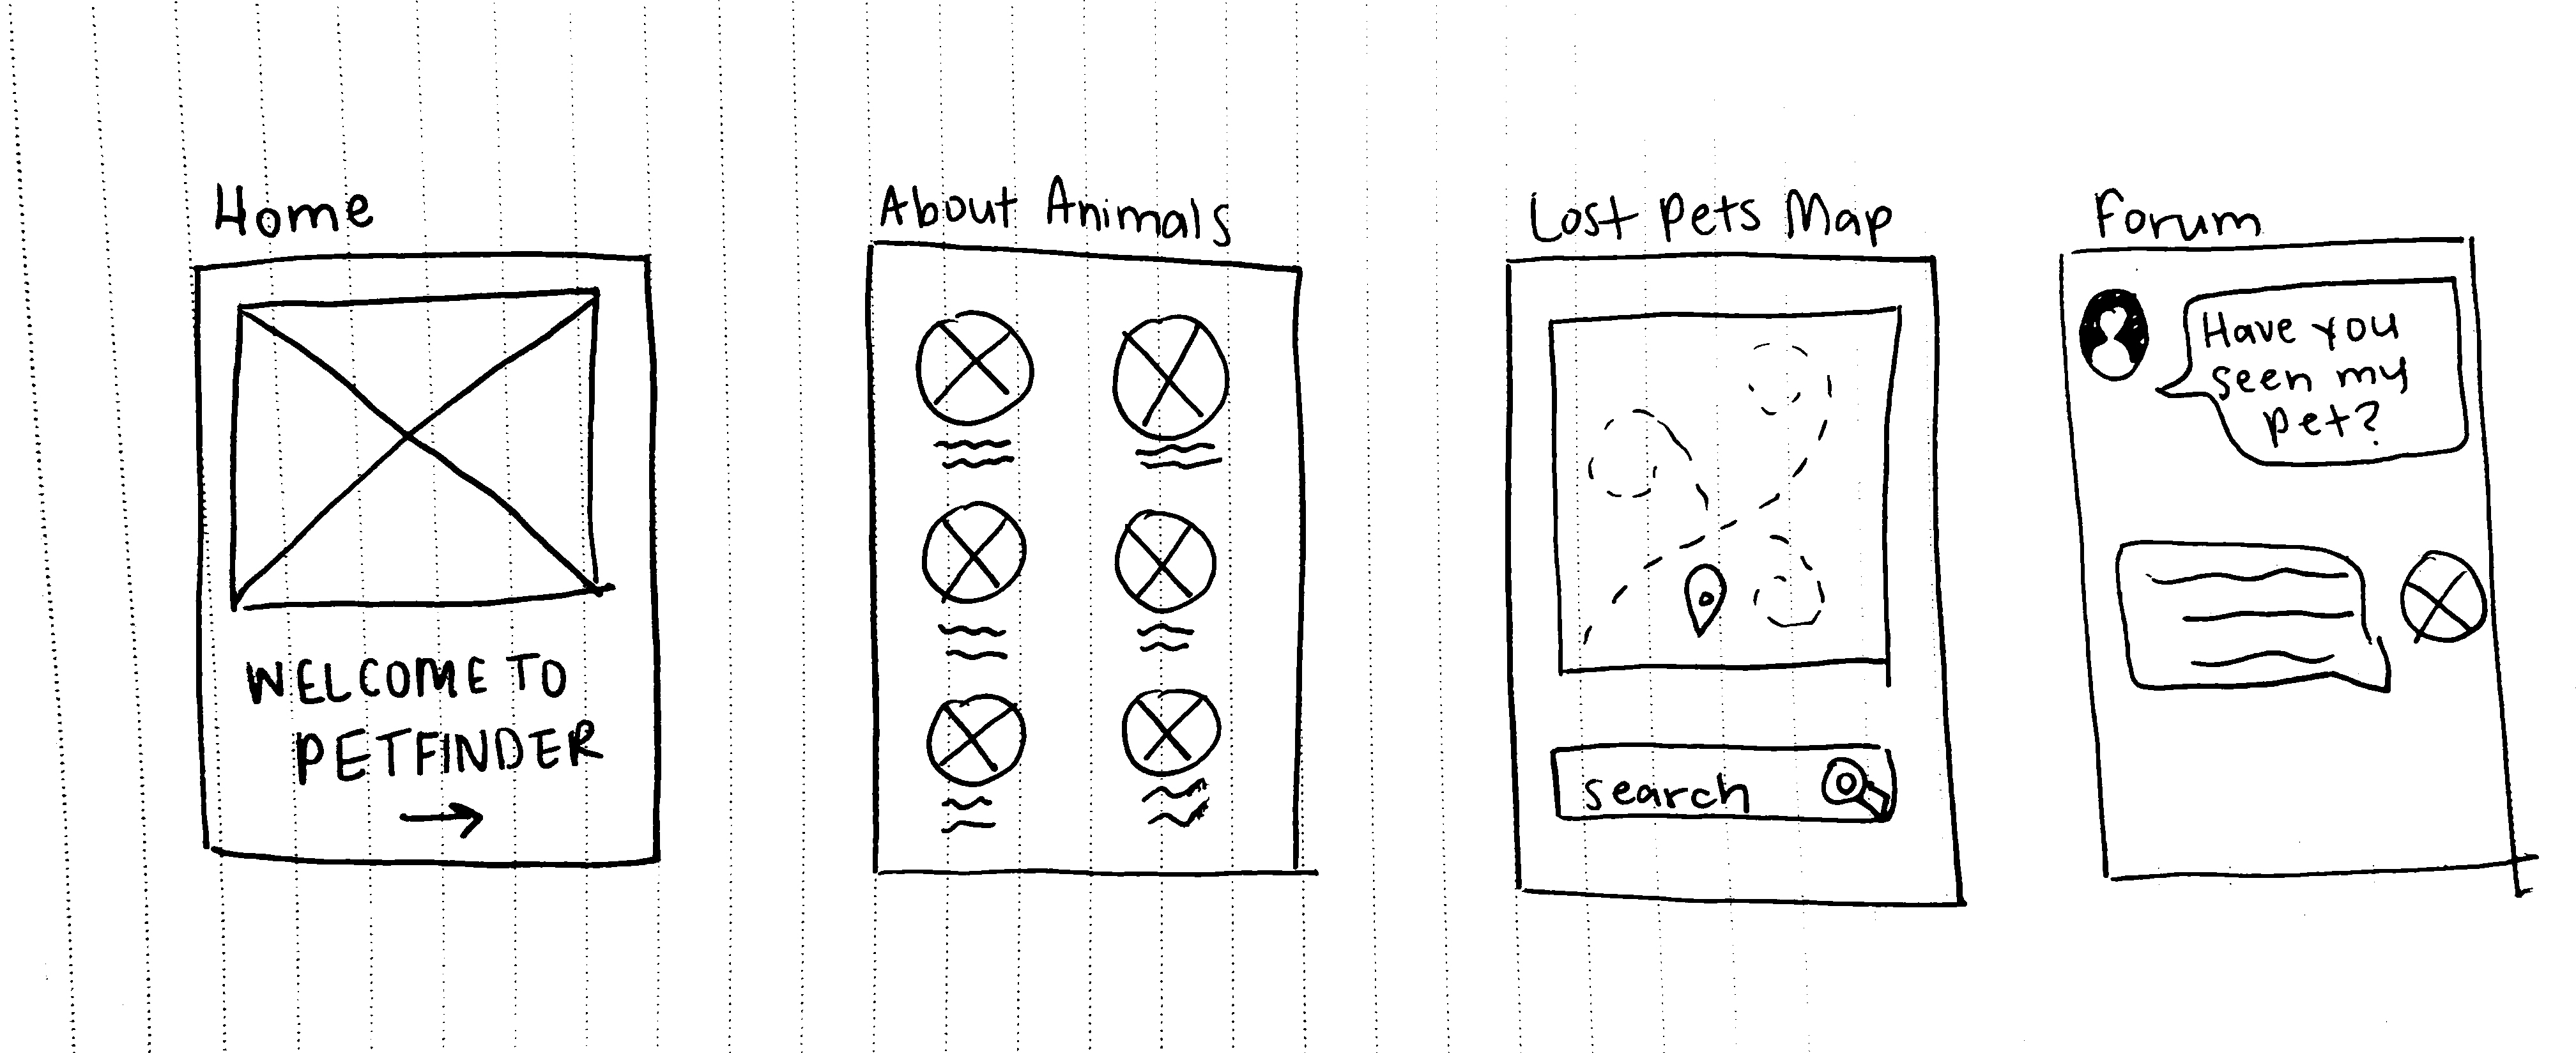 Home
WELCOME TO
PETFINDER
About Animals
Lost Pets Map
search
Forum
Have you
seen my
pet?